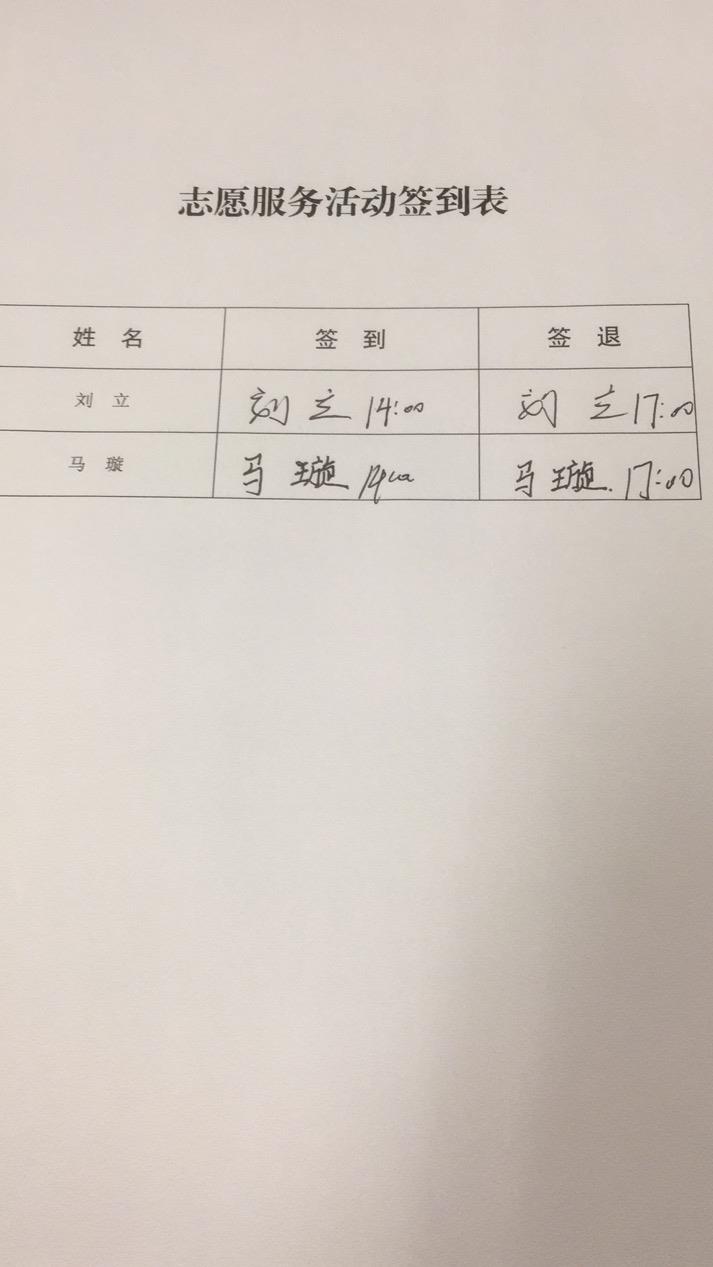 志愿服务活动签到表
姓 名 签 到 签 退
刘 立 刘 立 14:00 刘 立 17:00
马 璇 马 璇 14:00 马 璇. 17:00